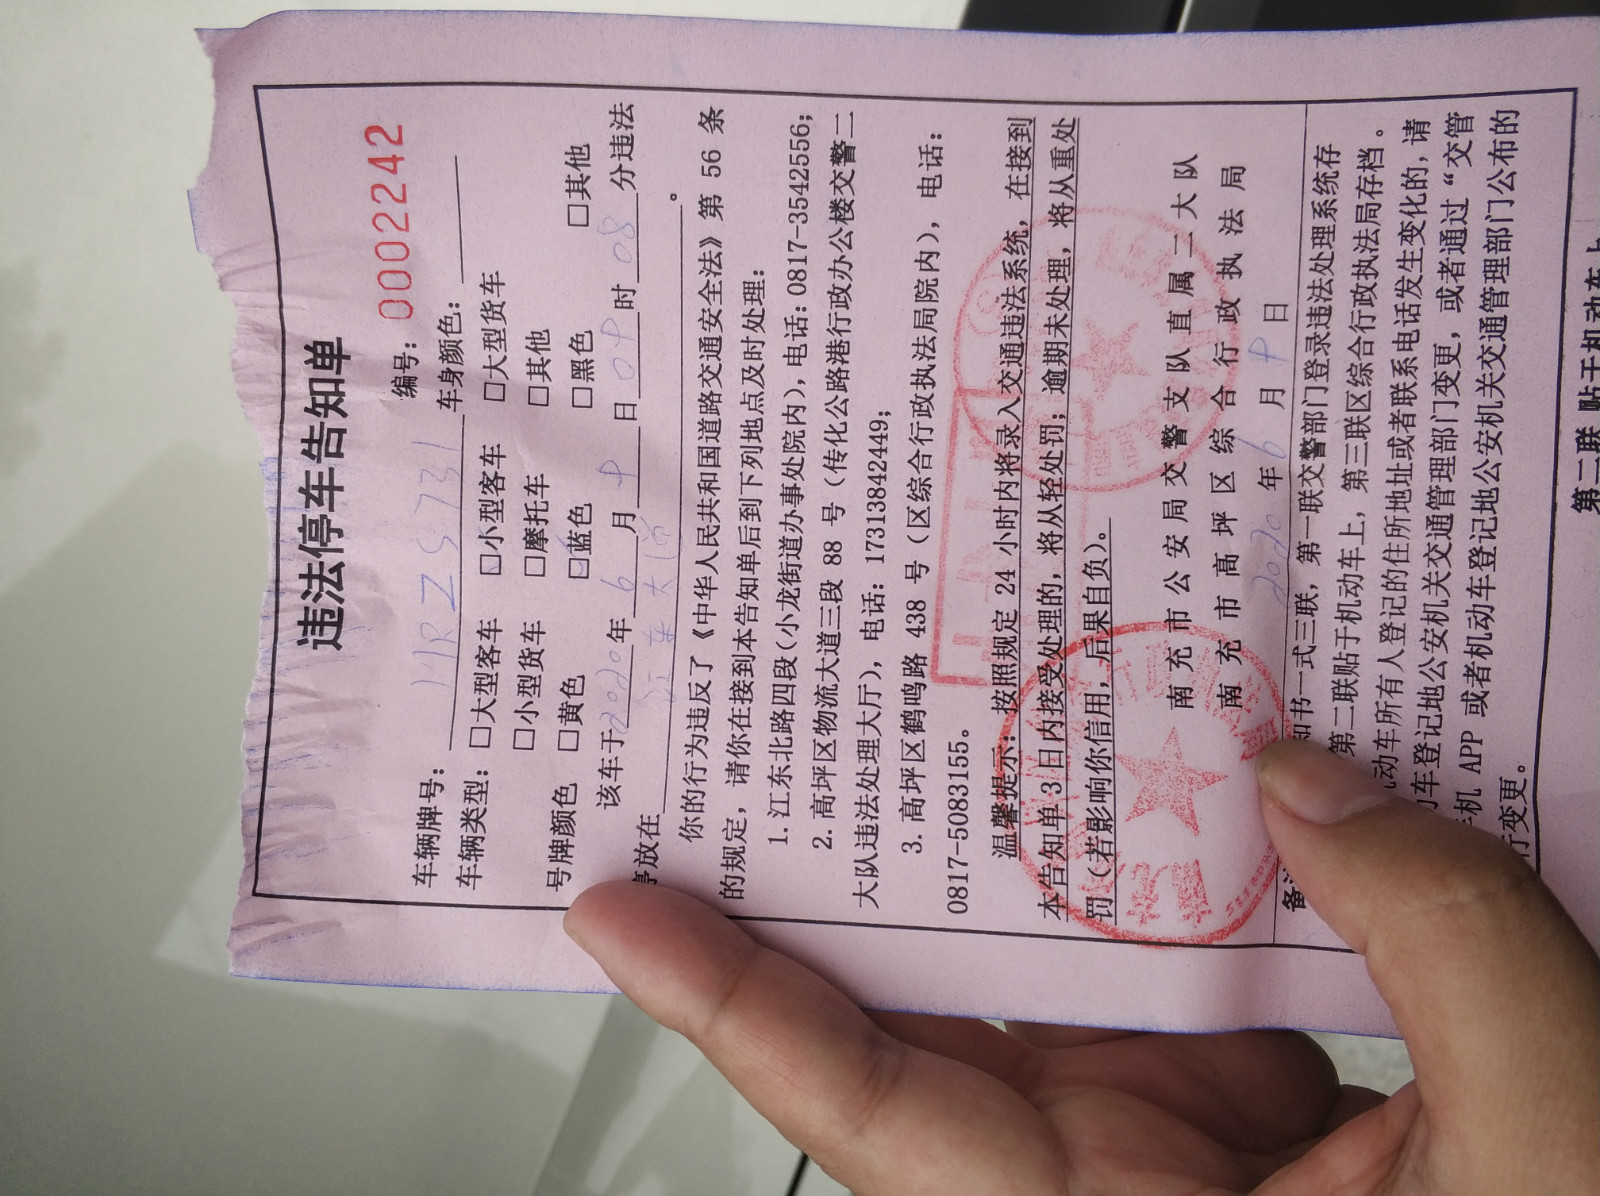 违法停车告知单
编号：0002242
车辆牌号： 车身颜色：
车辆类型：□大型客车 □小型客车 □大型货车
□小型货车 □摩托车 □其他
号牌颜色 □黄色 □蓝色 □黑色 □其他
该车于2020年6月9日09时08分违法
停放在 江东大道。
你的行为违反了《中华人民共和国道路交通安全法》第 56 条
的规定，请你在接到本告知单后到下列地点及时处理：
1. 江东北路四段（小龙街道办事处院内），电话：0817-3542556；
2. 高坪区物流大道三段 88 号（传化公路港行政办公楼交警二
大队违法处理大厅），电话：17313842449；
3. 高坪区鹤鸣路 438 号（区综合行政执法局院内），电话：
0817-5083155。
温馨提示：按照规定 24 小时内将录入交通违法系统，在接到
本告知单 3 日内接受处理的，将从轻处罚；逾期未处理，将从重处
罚（若影响你信用，后果自负）。
南充市公安局交警支队直属二大队
南充市高坪区综合行政执法局
2020年6月9日
知书一式三联，第一联交警部门登录违法处理系统存
第二联贴于机动车上，第三联区综合行政执法局存档。
动车所有人登记的住所地址或者联系电话发生变化的，请
车登记地公安机关交通管理部门变更，或者通过“交管
手机 APP 或者机动车登记地公安机关交通管理部门公布的
行变更。
第二联 贴于机动车上